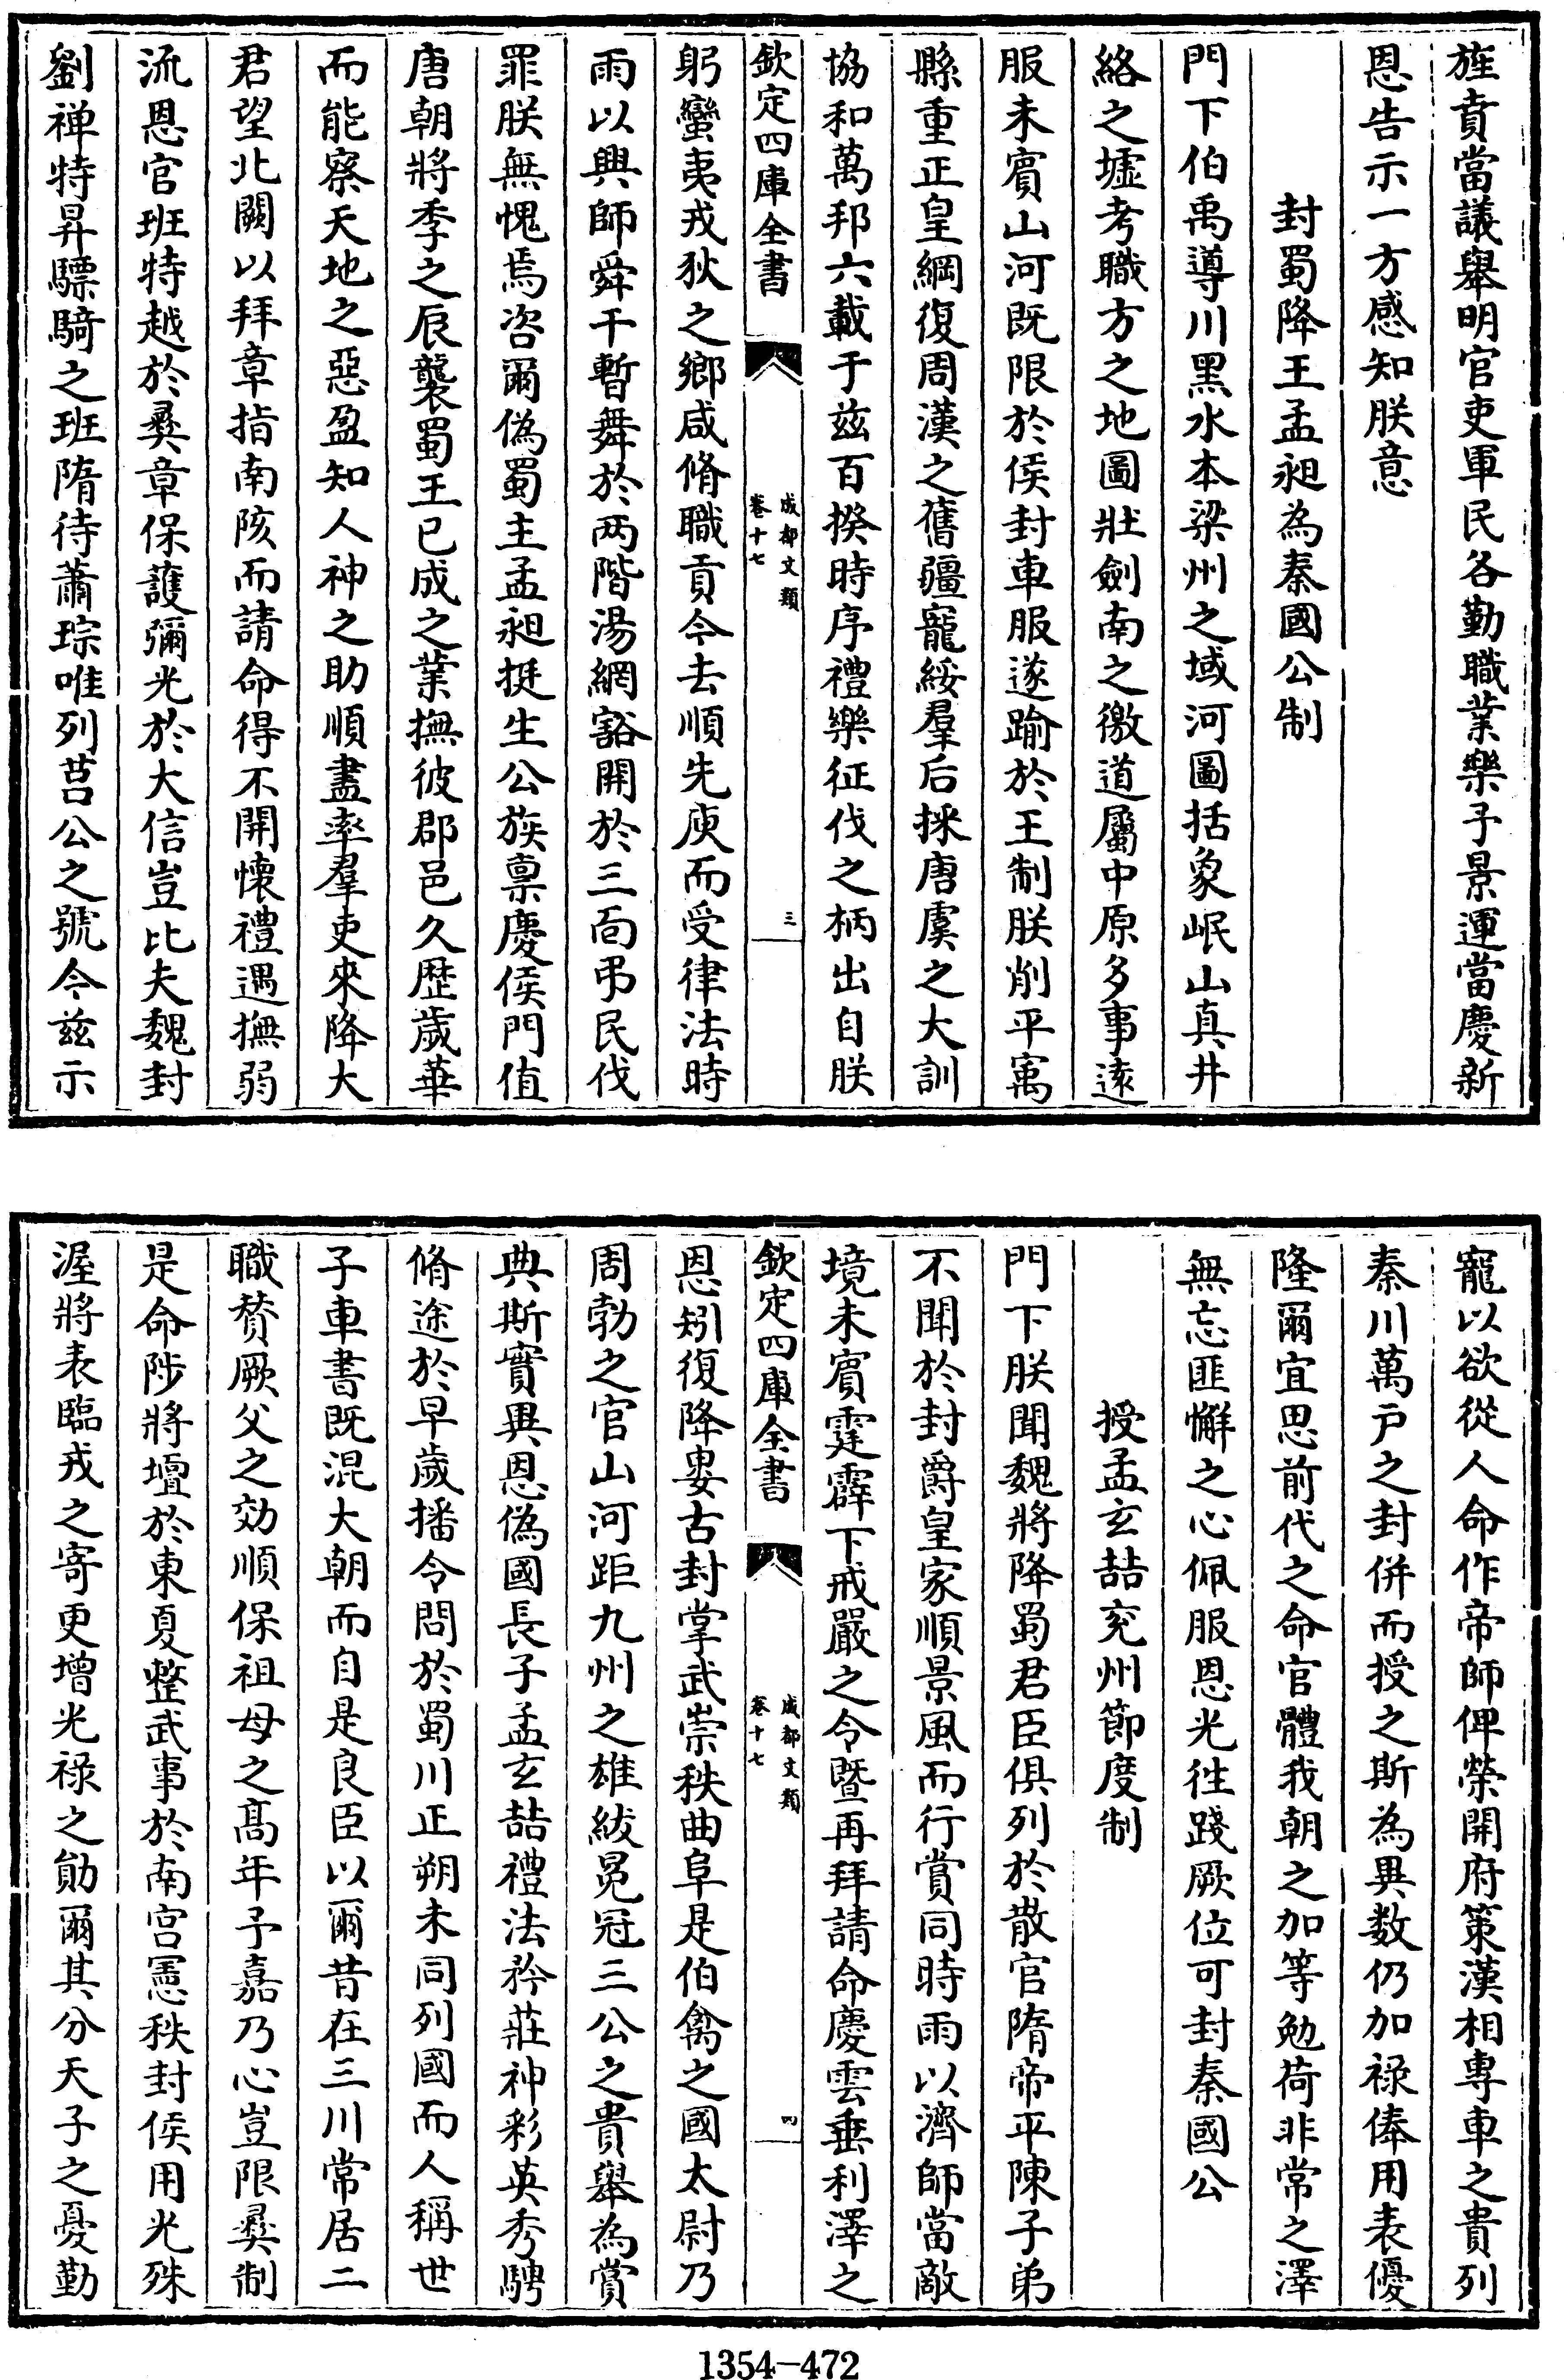 旌賁當議舉明官吏軍民各勤職業樂子景運當慶新
恩告示一方感知朕意
封蜀降王孟昶為秦國公制
門下伯禹導川黑水本梁州之域河圖括象岷山真井
絡之墟考職方之地圖壯劍南之徼道屬中原多事遠
服未賓山河既限於侯封車服遂踰於王制朕削平寓
縣重正皇綱復周漢之舊疆寵綏羣后採唐虞之大訓
協和萬邦六載于兹百揆時序禮樂征伐之柄出自朕
欽定四庫全書
成都文類
卷十七
三
躬蠻夷戎狄之鄉咸脩職貢今去順先庚而受律法時
雨以興師舜干暫舞於两階湯網豁開於三面弔民伐
罪朕無愧焉咨爾偽蜀主孟昶挺生公族禀慶侯門值
唐朝將季之辰襲蜀王已成之業撫彼郡邑久歴歲華
而能察天地之惡盈知人神之助順盡率羣吏來降大
君望北闕以拜章指南陔而請命得不開懷禮遇撫弱
流恩官班特越於彝章保護彌光於大信豈比夫魏封
劉禅特昇驃騎之班隋待蕭琮唯列莒公之號今兹示
寵以欲從人命作帝師俾榮開府策漢相專車之貴列
秦川萬户之封併而授之斯為異数仍加禄俸用表優
隆爾宜思前代之命官體我朝之加等勉荷非常之澤
無忘匪懈之心佩服恩光徃踐厥位可封秦國公
授孟玄喆兖州節度制
門下朕聞魏將降蜀君臣俱列於散官隋帝平陳子弟
不聞於封爵皇家順景風而行賞同時雨以濟師當敵
境未賓霆霹下戒嚴之令暨再拜請命慶雲垂利澤之
欽定四庫全書
成都文類
卷十七
四
恩矧復降婁古封掌武崇秩曲阜是伯禽之國太尉乃
周勃之官山河距九州之雄紱冕冠三公之貴舉為賞
典斯實異恩偽國長子孟玄喆禮法矜莊神彩英秀騁
脩途於早歲播令問於蜀川正朔未同列國而人稱世
子車書既混大朝而自是良臣以爾昔在三川常居二
職賛厥父之効順保祖母之髙年予嘉乃心豈限彝制
是命陟將壇於東夏整武事於南宫憲秩封侯用光殊
渥將表臨戎之寄更增光禄之勛爾其分天子之憂勤
1354—472